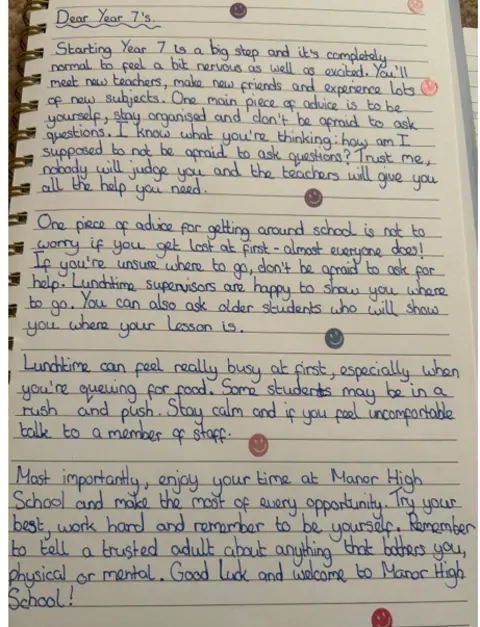 Dear Year 7's.
Starting Year 7 is a big step and it's completely
normal to feel a bit nervous as well as excited. You'll
meet new teachers, make new friends and experience lots
of new subjects. One main piece of advice is to be
yourself, stay organised and don't be afraid to ask
questions. I know what you're thinking: how am I
supposed to not be afraid to ask questions? Trust me,
nobody will judge you and the teachers will give you
all the help you need.
One piece of advice for getting around school is not to
worry if you get lost at first - almost everyone does!
If you're unsure where to go, don't be afraid to ask for
help. Lunchtime supervisors are happy to show you where
to go. You can also ask older students who will show
you where your lesson is.
Lunchtime can feel really busy at first, especially when
you're queuing for food. Some students may be in a
rush and push. Stay calm and if you feel uncomfortable
talk to a member of staff.
Most importantly, enjoy your time at Manor High
School and make the most of every opportunity. Try your
best, work hard and remember to be yourself. Remember
to tell a trusted adult about anything that bothers you,
physical or mental. Good luck and welcome to Manor High
School!